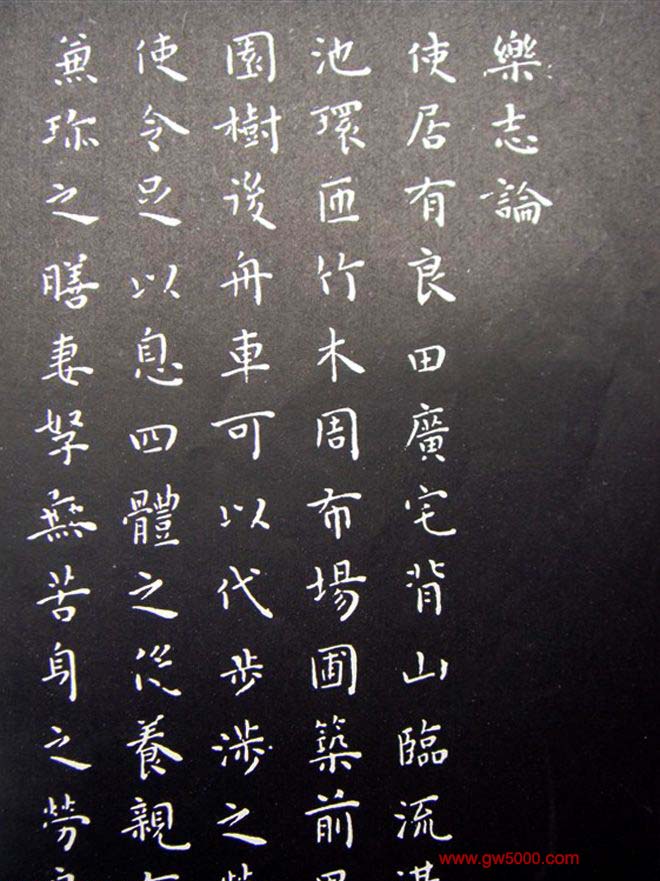 樂志論
使居有良田廣宅背山臨流溝
池環匝竹木周布場圃築前果
園樹後舟車可以代步涉之
使令足以息四體之役養親有
兼珎之膳妻孥無苦身之勞良
www.gw5000.com